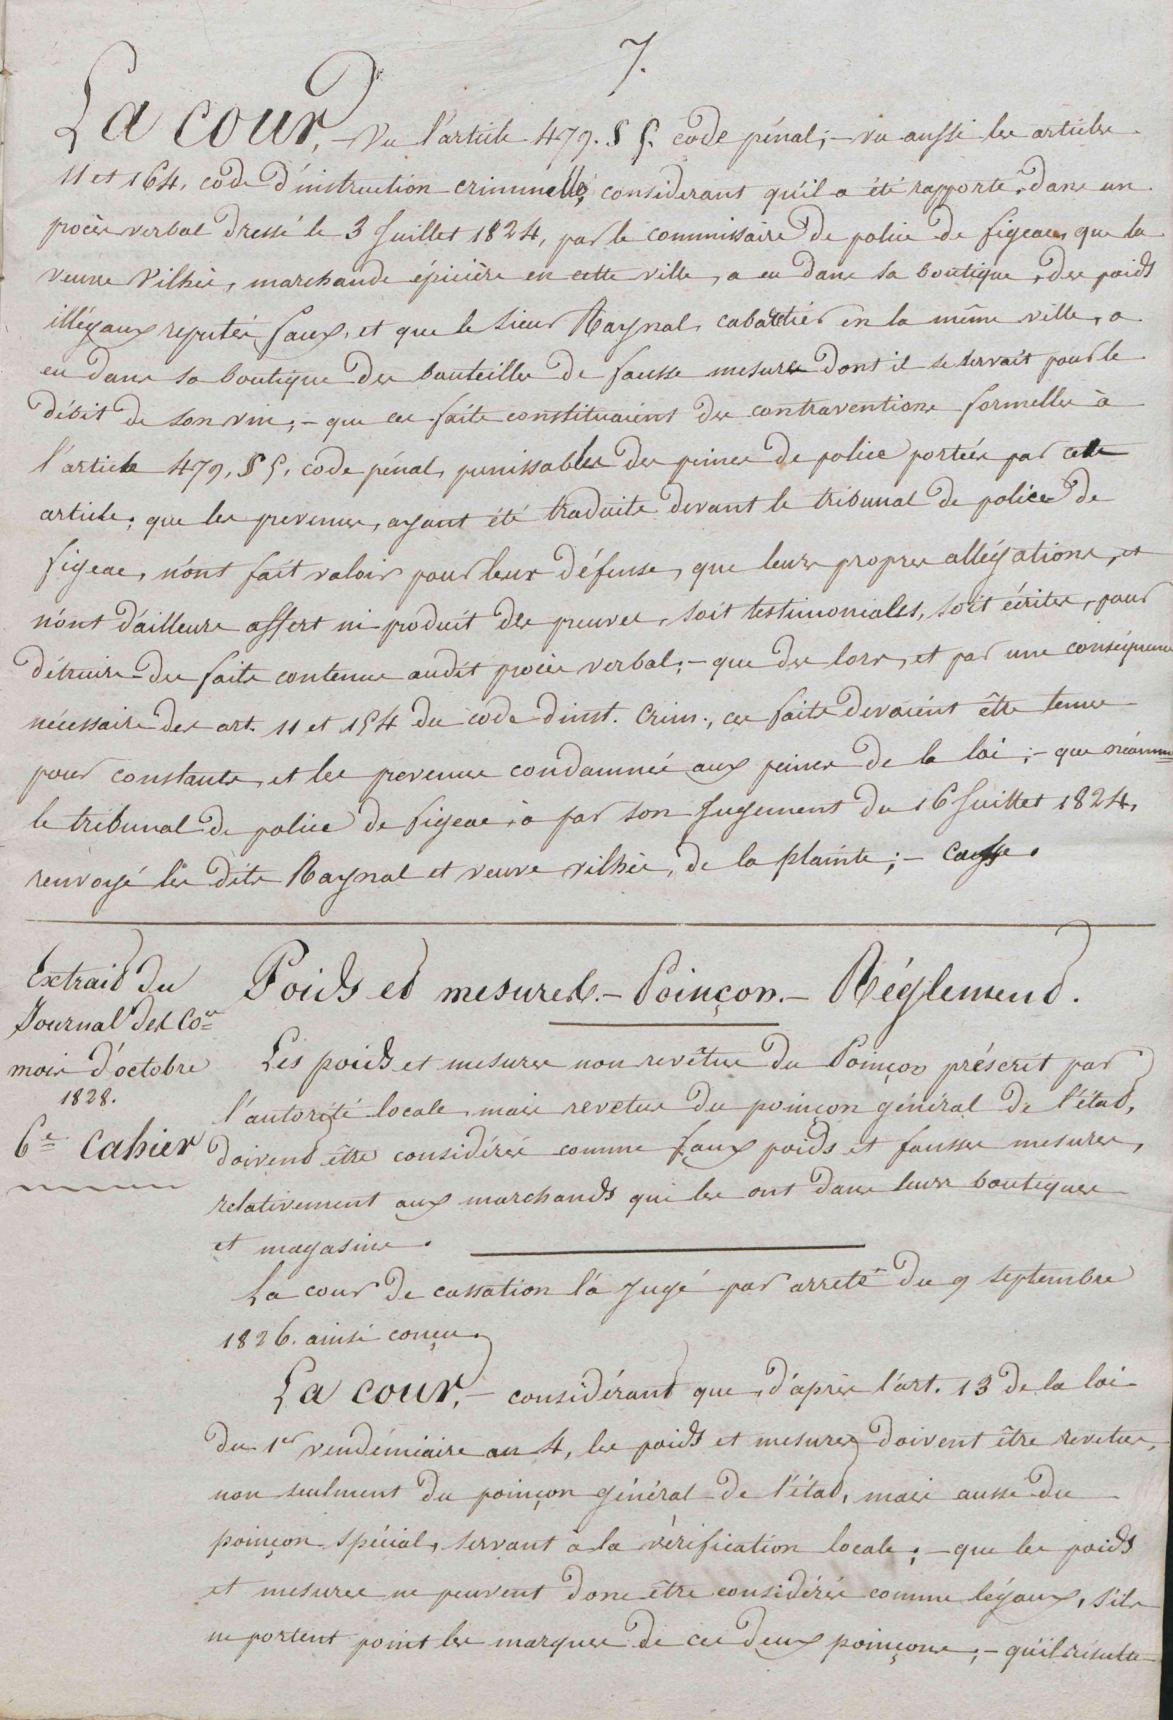 7.
La cour, – Vu l'article 479. § 5. code pénal; – vu aussi les articles
11 et 164, code d'instruction criminelle; considerant qu'il a été rapporté, dans un
procès verbal dressé le 3 Juillet 1824, par le commissaire de police de figeac, que la
veuve Vilhiès, marchande épicière en cette ville, a eu dans sa boutique, des poids
illégaux reputés faux, et que le sieur Raynal, cabaretier en la même ville, a
eu dans sa boutique des bouteilles de fausse mesure dont il se servait pour le
débit de son vin; – que ces faits constituaient des contraventions formelles à
l'article 479, § 5, code pénal, punissables des peines de police portées par cette
article; que les prevenus, ayant été traduits devant le tribunal de police de
figeac, n'ont fait valoir pour leur défense, que leurs propres allégations, et
n'ont d'ailleurs offert ni produit des preuves, soit testimoniales, soit écrites, pour
détruire des faits contenus audit procès verbal; – que des lors, et par une conséquence
nécessaire des art. 11 et 154 du code d'inst. crim., ces faits devaient être tenus
pour constants, et les prevenus condamnés aux peines de la loi; – que néanmoins
le tribunal de police de figeac, a par son Jugement du 16 Juillet 1824,
renvoyé les dits Raynal et veuve vilhiès, de la plainte; – casse.
Extrait du
Journal des Coes
mois d'octobre
1828.
6e Cahier
Poids et mesures. – Poinçon. – Réglement.
Les poids et mesures non revêtus du Poinçon préscrit par
l'autorité locale, mais revetus du poinçon général de l'état,
doivent être considérés comme faux poids et fausses mesures,
relativement aux marchands qui les ont dans leurs boutiques
et magasins.
La cour de cassation l'a Jugé par arreté du 9 septembre
1826. ainsi conçu.
La cour, – considérant que, d'après l'art. 13 de la loi
du 1er vendémiaire an 4, les poids et mesures doivent être revetus,
non seulment du poinçon général de l'état, mais aussi du
poinçon spécial, servant à la vérification locale; – que les poids
et mesures ne peuvent donc être considérés comme légaux, s'ils
ne portent point les marques de ces deux poinçons; – qu'il résulte